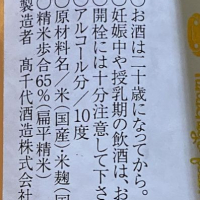 ○お酒は二十歳になってから。
○妊娠中や授乳期の飲酒は、お
○開栓には十分注意して下さ
○アルコール分／10度
○原材料名／米（国産）・米麹（国
○精米歩合65％（扁平精米）
製造者　髙千代酒造株式会